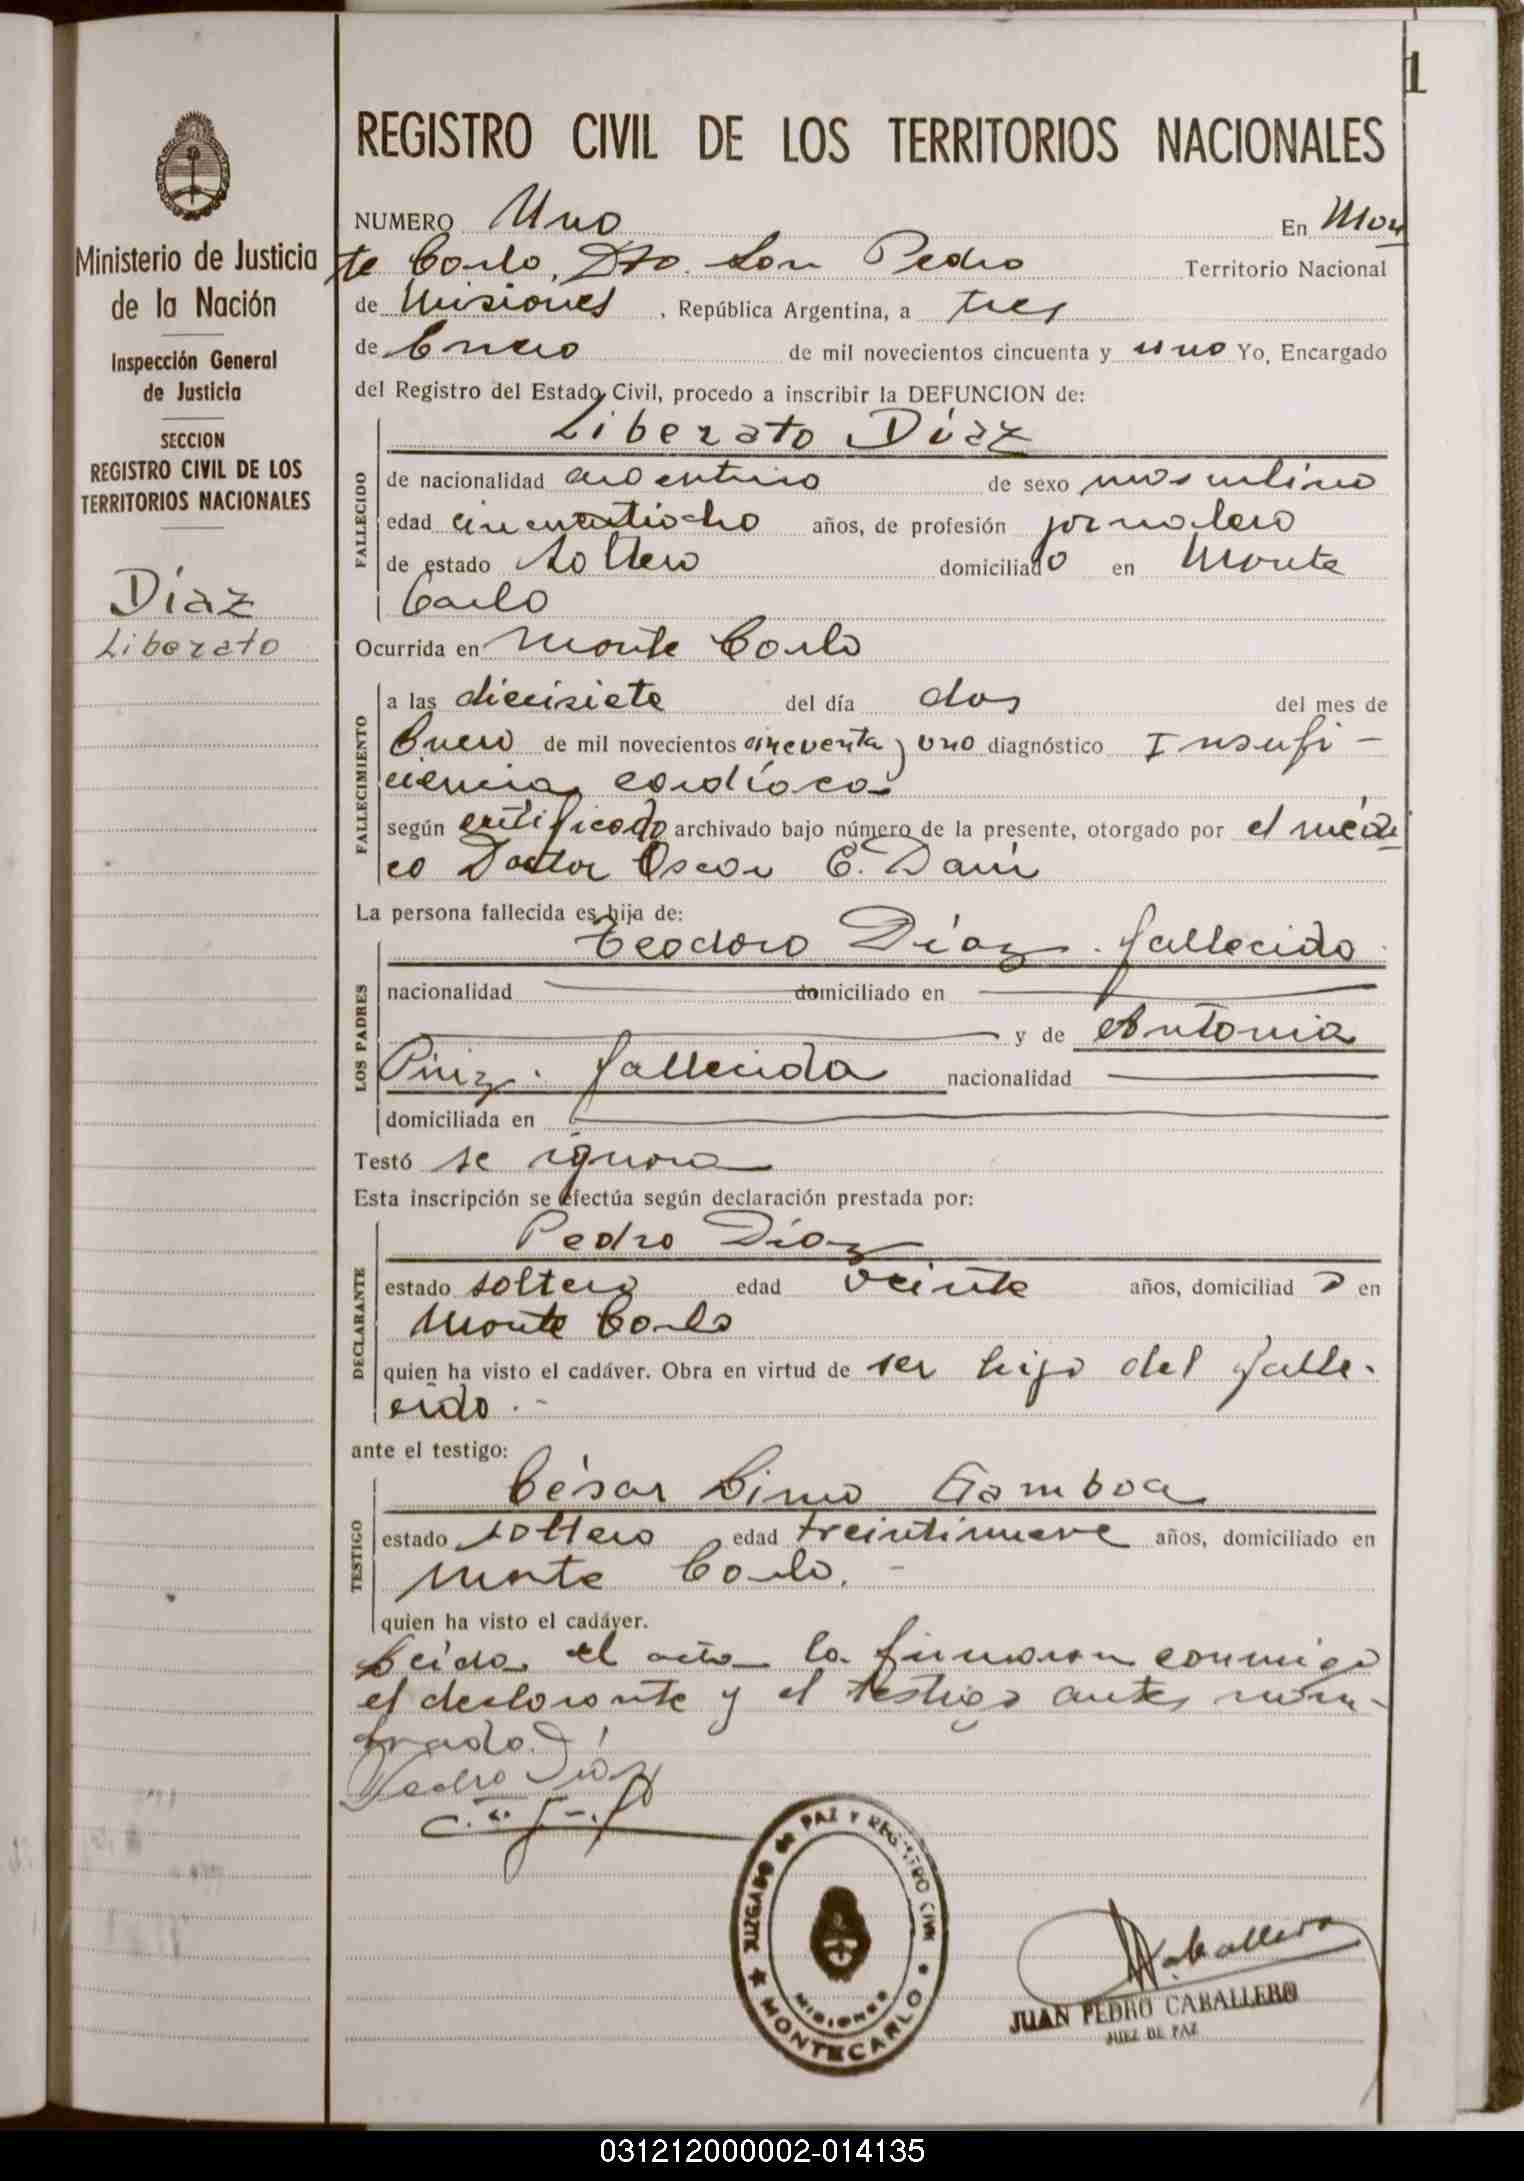 1
Ministerio de Justicia
de la Nación
Inspección General
de Justicia
SECCION
REGISTRO CIVIL DE LOS
TERRITORIOS NACIONALES
Díaz
Liberato
REGISTRO CIVIL DE LOS TERRITORIOS NACIONALES
NUMERO Uno En Mon
te Carlo, Dto. San Pedro Territorio Nacional
de Misiones, República Argentina, a tres
de Enero de mil novecientos cincuenta y uno Yo, Encargado
del Registro del Estado Civil, procedo a inscribir la DEFUNCION de:
Liberato Díaz
FALLECIDO
de nacionalidad argentino de sexo masculino
edad cincuentiocho años, de profesión jornalero
de estado soltero domiciliado en Monte
Carlo
Ocurrida en Monte Carlo
FALLECIMIENTO
a las diecisiete del día dos del mes de
Enero de mil novecientos cincuenta y uno diagnóstico Insufi-
ciencia cardíaca
según certificado archivado bajo número de la presente, otorgado por el médi
co Doctor Oscar E.
La persona fallecida es hija de:
Teodoro Díaz. fallecido
LOS PADRES
nacionalidad domiciliado en
y de Antonia
fallecida nacionalidad
domiciliada en
Testó se ignora
Esta inscripción se efectúa según declaración prestada por:
Pedro Díaz
DECLARANTE
estado soltero edad veinte años, domiciliado en
Monte Carlo
quien ha visto el cadáver. Obra en virtud de ser hijo del falle-
cido.-
ante el testigo:
César Limo Gamboa
TESTIGO
estado soltero edad treintinueve años, domiciliado en
Monte Carlo.-
quien ha visto el cadáver.
Leída el acta la firmaron conmigo
el declarante y el testigo antes nom-
brado.
Pedro Díaz
JUZGADO DE PAZ Y REGISTRO CIVIL
MISIONES
MONTECARLO
Caballero
JUAN PEDRO CABALLERO
JUEZ DE PAZ
031212000002-014135